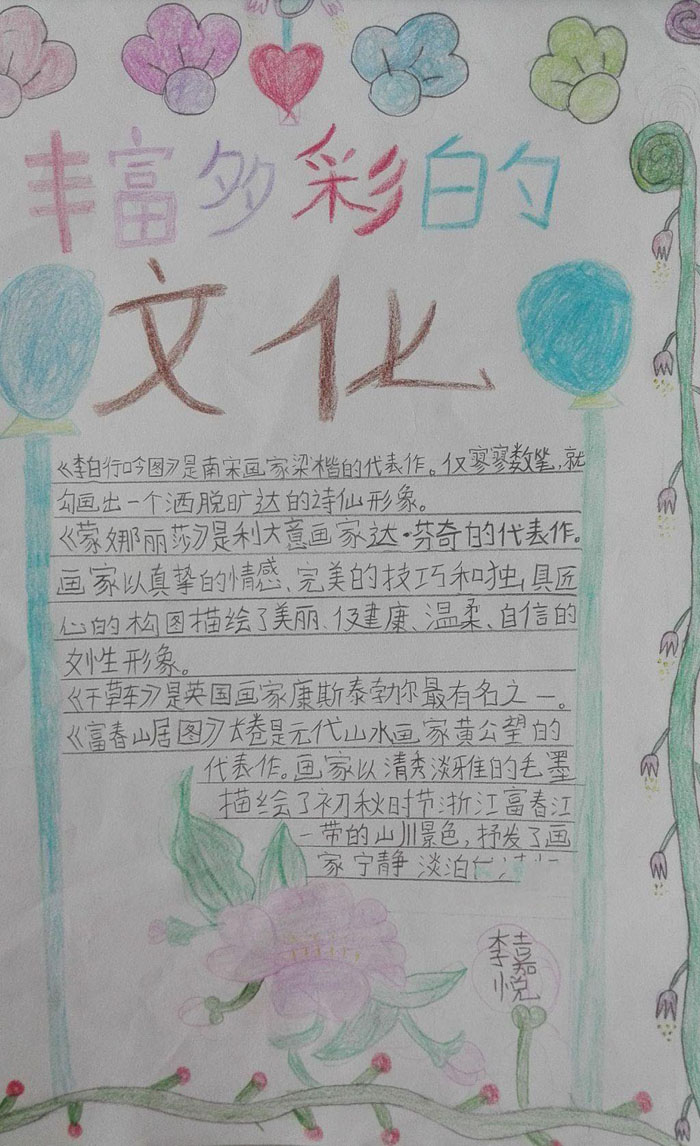 丰富多彩的
文化
《李白行吟图》是南宋画家梁楷的代表作。仅寥寥数笔,就
勾画出一个洒脱旷达的诗仙形象。
《蒙娜丽莎》是利大意画家达·芬奇的代表作。
画家以真挚的情感、完美的技巧和独具匠
心的构图描绘了美丽、仅健康、温柔、自信的
女性形象。
《干草车》是英国画家康斯泰勃尔最有名之一。
《富春山居图》长卷是元代山水画家黄公望的
代表作。画家以清秀淡雅的毛墨
描绘了初秋时节浙江富春江
一带的山川景色,抒发了画
家宁静淡泊
李嘉
悦